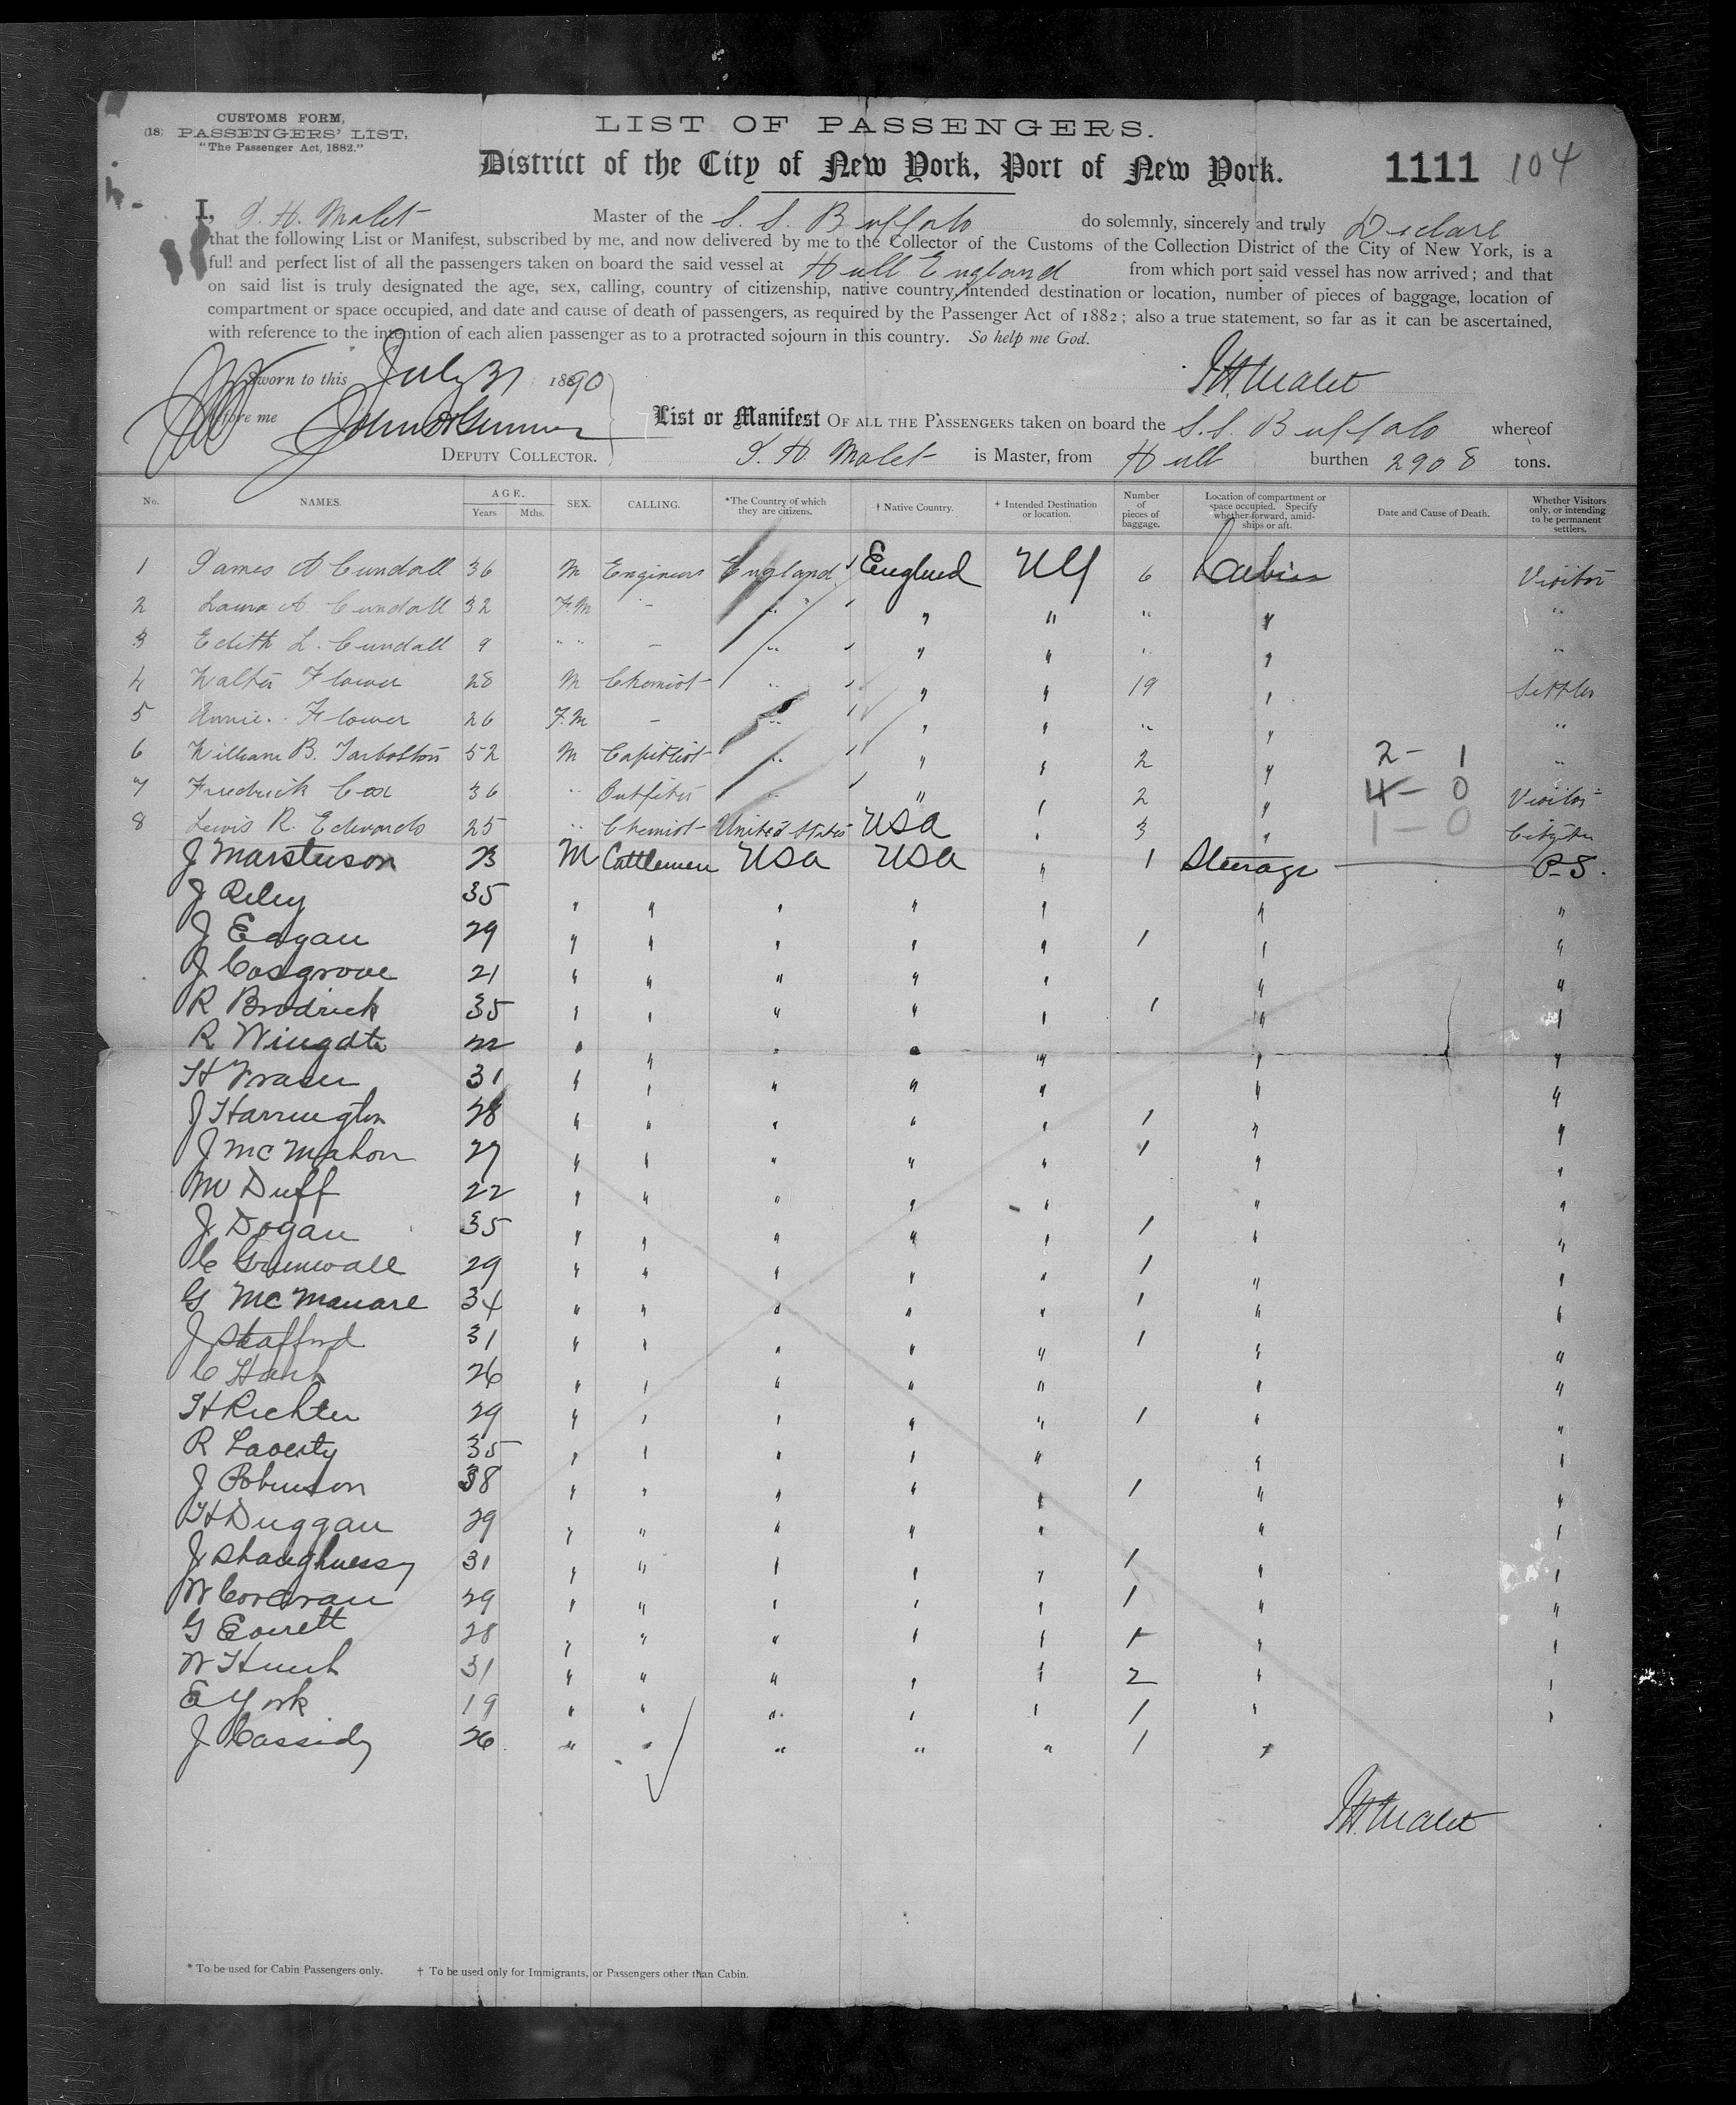 CUSTOMS FORM,
(18) PASSENGERS' LIST,
"The Passenger Act, 1882."
LIST OF PASSENGERS.
District of the City of New York, Port of New York. 1111 104
I, J. H. Malet Master of the S. S. Buffalo do solemnly, sincerely and truly Declare
that the following List or Manifest, subscribed by me, and now delivered by me to the Collector of the Customs of the Collection District of the City of New York, is a
full and perfect list of all the passengers taken on board the said vessel at Hull England from which port said vessel has now arrived; and that
on said list is truly designated the age, sex, calling, country of citizenship, native country, intended destination or location, number of pieces of baggage, location of
compartment or space occupied, and date and cause of death of passengers, as required by the Passenger Act of 1882; also a true statement, so far as it can be ascertained,
with reference to the intention of each alien passenger as to a protracted sojourn in this country. So help me God.
Sworn to this July 31 1890 J H Malet
before me
List or Manifest OF ALL THE PASSENGERS taken on board the S. S. Buffalo whereof
DEPUTY COLLECTOR. J. H. Malet is Master, from Hull burthen 2908 tons.
No. NAMES. AGE. Years Mths. SEX. CALLING. *The Country of which they are citizens. † Native Country. + Intended Destination or location. Number of pieces of baggage. Location of compartment or space occupied. Specify whether forward, amidships or aft. Date and Cause of Death. Whether Visitors only, or intending to be permanent settlers.
1 James A Cundall 36 M Engineer England England NY 6 Cabin Visitor
2 Laura A. Cundall 32 F.M - " " " " " "
3 Edith L. Cundall 9 " " - " " " " " "
4 Walter Flower 28 M Chemist " " " 19 " Settler
5 Annie Flower 26 F.M - " " " " " "
6 William B. Tarbotton 52 M Capitlist " " " 2 " 2 - 1 "
7 Fredrick Cox 36 " Outfitter " " " 2 " 4 - 0 Visitor
8 Lewis R. Edwards 25 " Chemist United States USA " 3 " 1 - 0 Citizen
J Marsterson 23 M Cattlemen USA USA " 1 Steerage P S.
J Riley 35 " " " " " " "
J Eagan 29 " " " " " 1 " "
J Cosgrove 21 " " " " " " "
R Brodrick 35 " " " " " 1 " "
R Wingate 22 " " " " " " "
H Fraser 31 " " " " " " "
J Harrington 28 " " " " " 1 " "
J McMahon 27 " " " " " 1 " "
M Duff 22 " " " " " " "
J Dogan 35 " " " " " 1 " "
C Grunwall 29 " " " " " 1 " "
G McManare 34 " " " " " 1 " "
J Stafford 31 " " " " " 1 " "
C Hart 26 " " " " " " "
H Richter 29 " " " " " 1 " "
R Laverty 35 " " " " " " "
J Robinson 38 " " " " " 1 " "
H Duggan 29 " " " " " " "
J Shaughnessy 31 " " " " " 1 " "
W Corcoran 29 " " " " " 1 " "
G Everett 28 " " " " " 1 " "
W Hunt 31 " " " " " 2 " "
E York 19 " " " " " 1 " "
J Cassidy 26 " " " " " 1 "
J H Malet
* To be used for Cabin Passengers only. † To be used only for Immigrants, or Passengers other than Cabin.